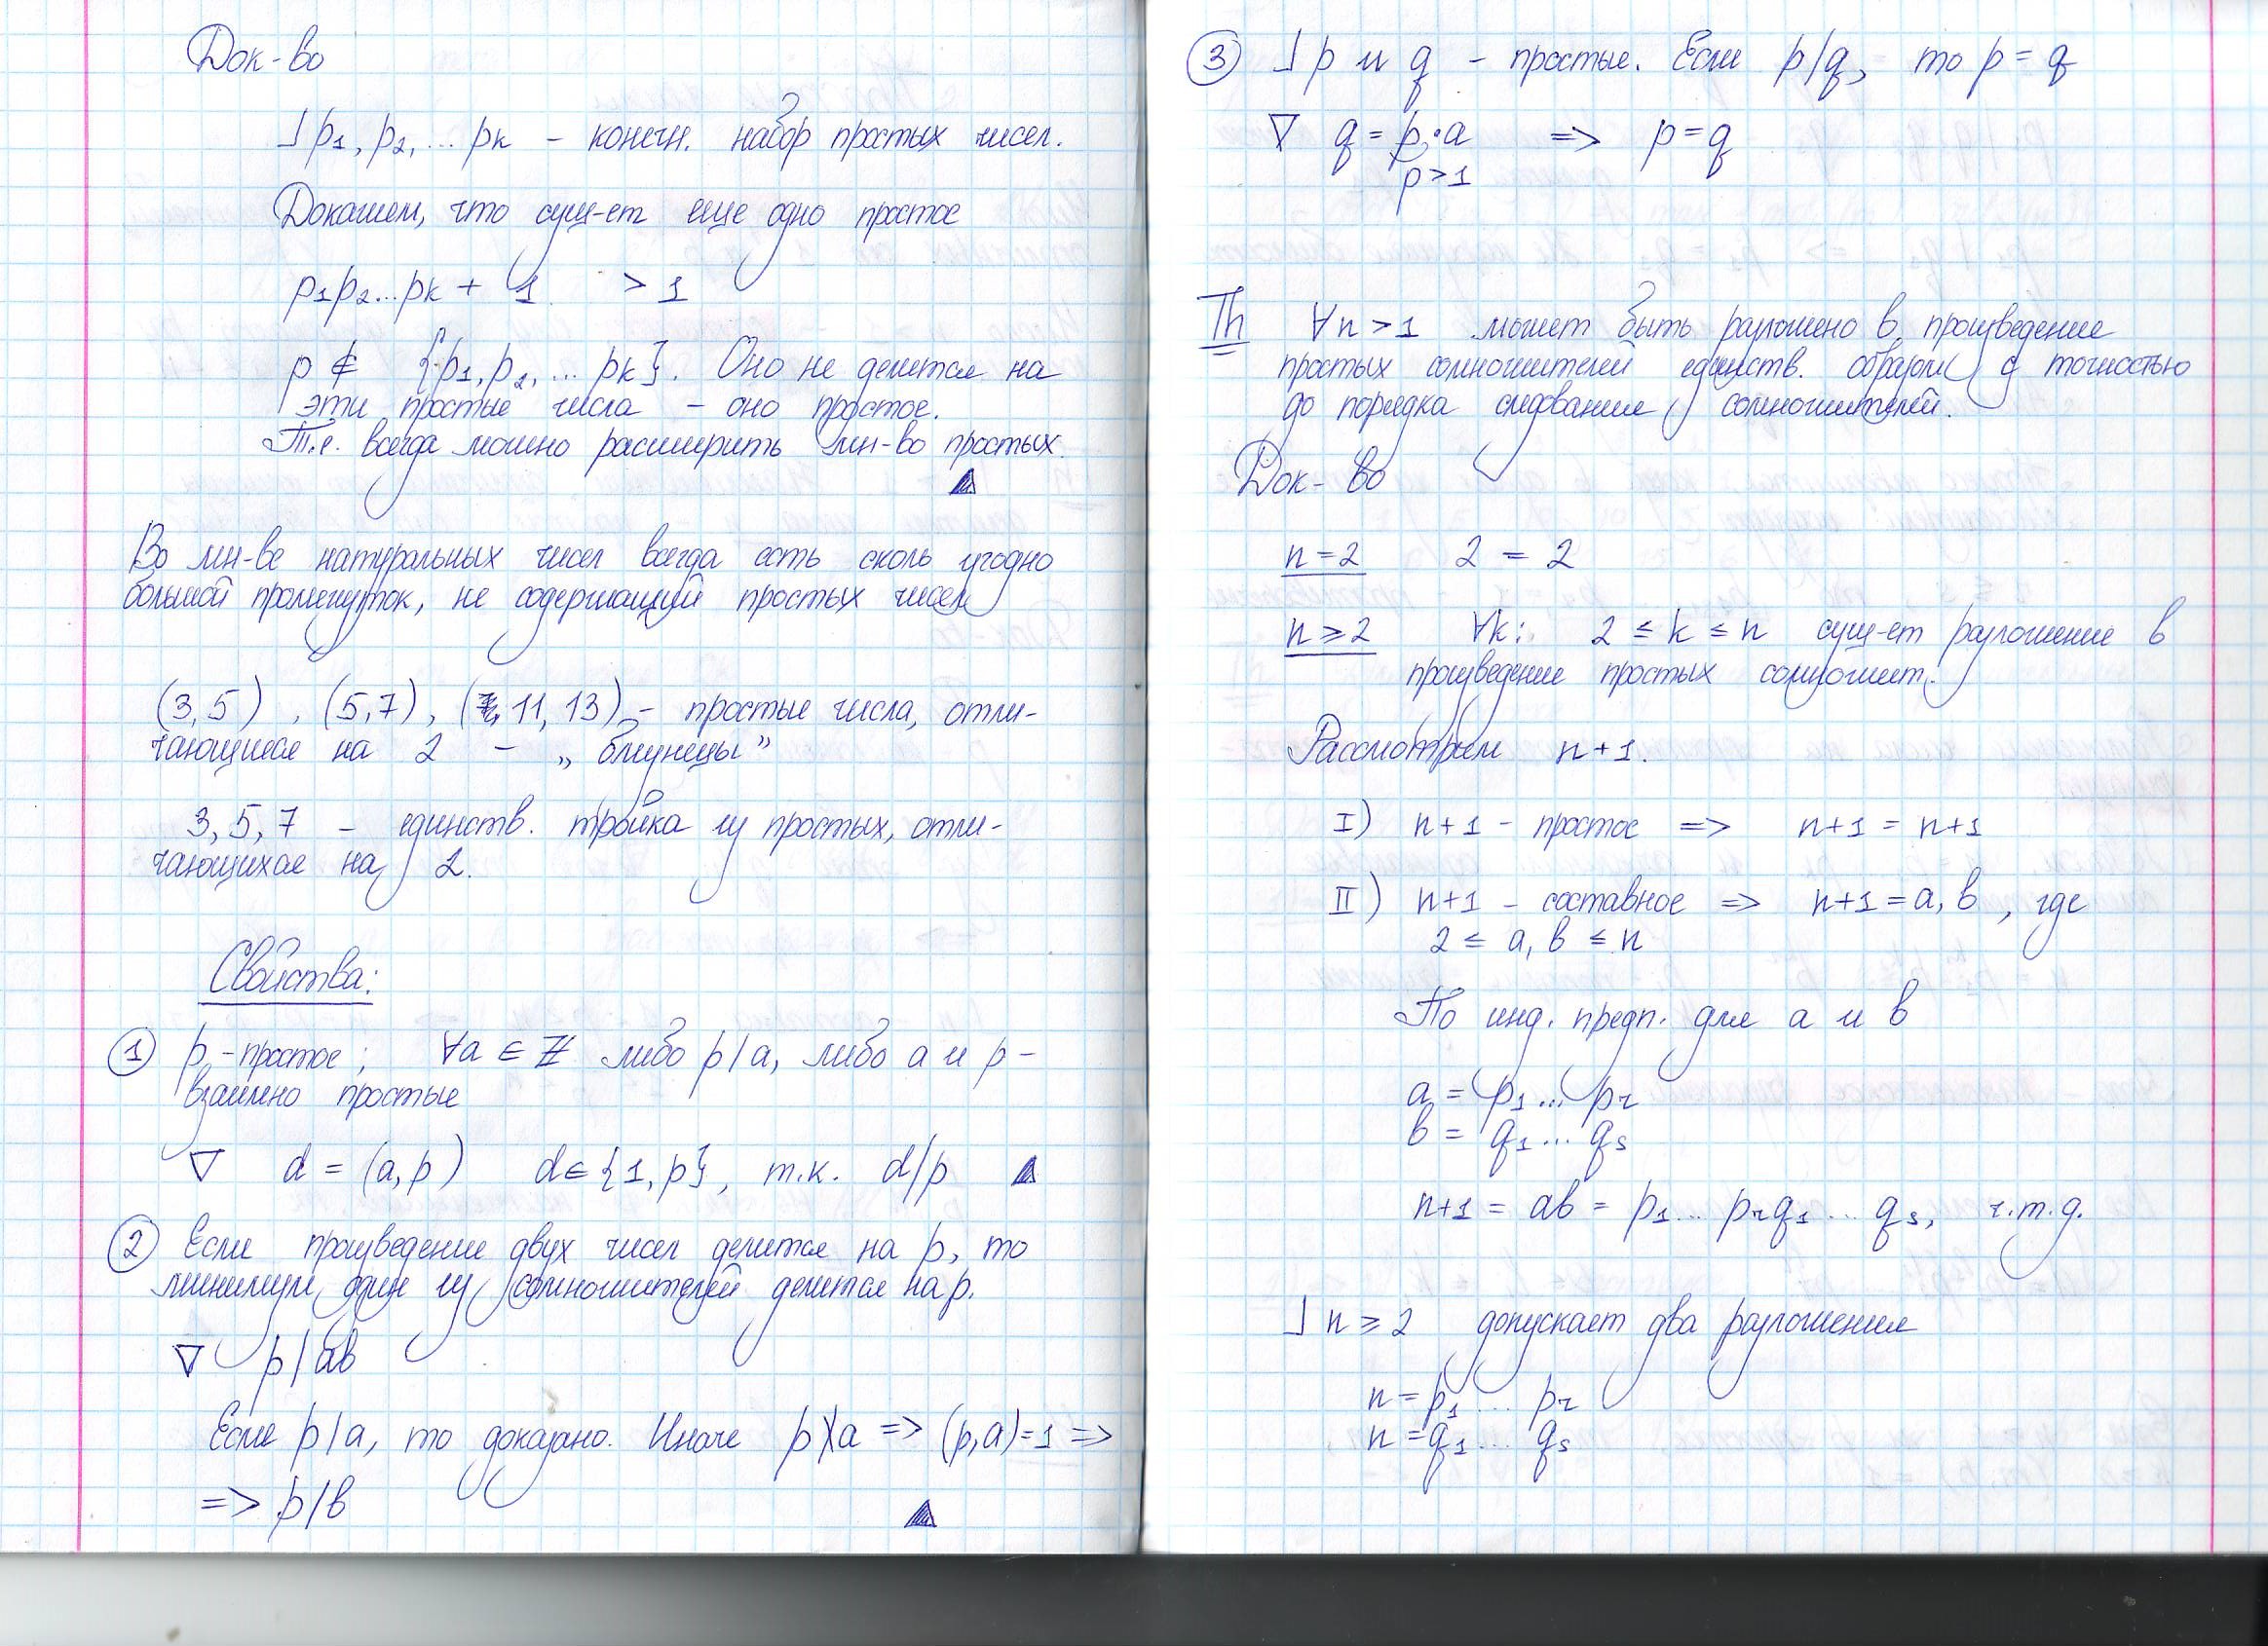 Док-во
⅃ p1, p2, ... pk – конечн. набор простых чисел.
Докажем, что сущ-ет еще одно простое
p1p2...pk + 1 > 1
p ∉ {p1, p2, ... pk}. Оно не делится на
эти простые числа – оно простое.
Т.е. всегда можно расширить мн-во простых.
Во мн-ве натуральных чисел всегда есть сколь угодно
большой промежуток, не содержащий простых чисел
(3,5), (5,7), (11, 13) – простые числа, отли-
чающиеся на 2 – „близнецы”
3, 5, 7 – единств. тройка из простых, отли-
чающихся на 2.
Свойства:
① p – простое; ∀a ∈ Z либо p/a, либо a и p –
взаимно простые
▽ d = (a,p) d ∈ {1, p}, т.к. d/p
② Если произведение двух чисел делится на p, то
минимум один из сомножителей делится на p.
▽ p/ab
Если p/a, то доказано. Иначе p∤a => (p,a)=1 =>
=> p/b
③ ⅃ p и q – простые. Если p/q, то p = q
▽ q = p·a => p = q
p>1
Th ∀n > 1 может быть разложено в произведение
простых сомножителей единств. образом с точностью
до порядка следования сомножителей.
Док-во
n = 2 2 = 2
n ≥ 2 ∀k: 2 ≤ k ≤ n сущ-ет разложение в
произведение простых сомножит.
Рассмотрим n+1.
I) n+1 – простое => n+1 = n+1
II) n+1 – составное => n+1 = a, b, где
2 ≤ a, b ≤ n
По инд. предп. для a и b
a = p1 ... pr
b = q1 ... qs
n+1 = ab = p1 ... prq1 ... qs, ч.т.д.
⅃ n ≥ 2 допускает два разложения
n = p1 ... pr
n = q1 ... qs